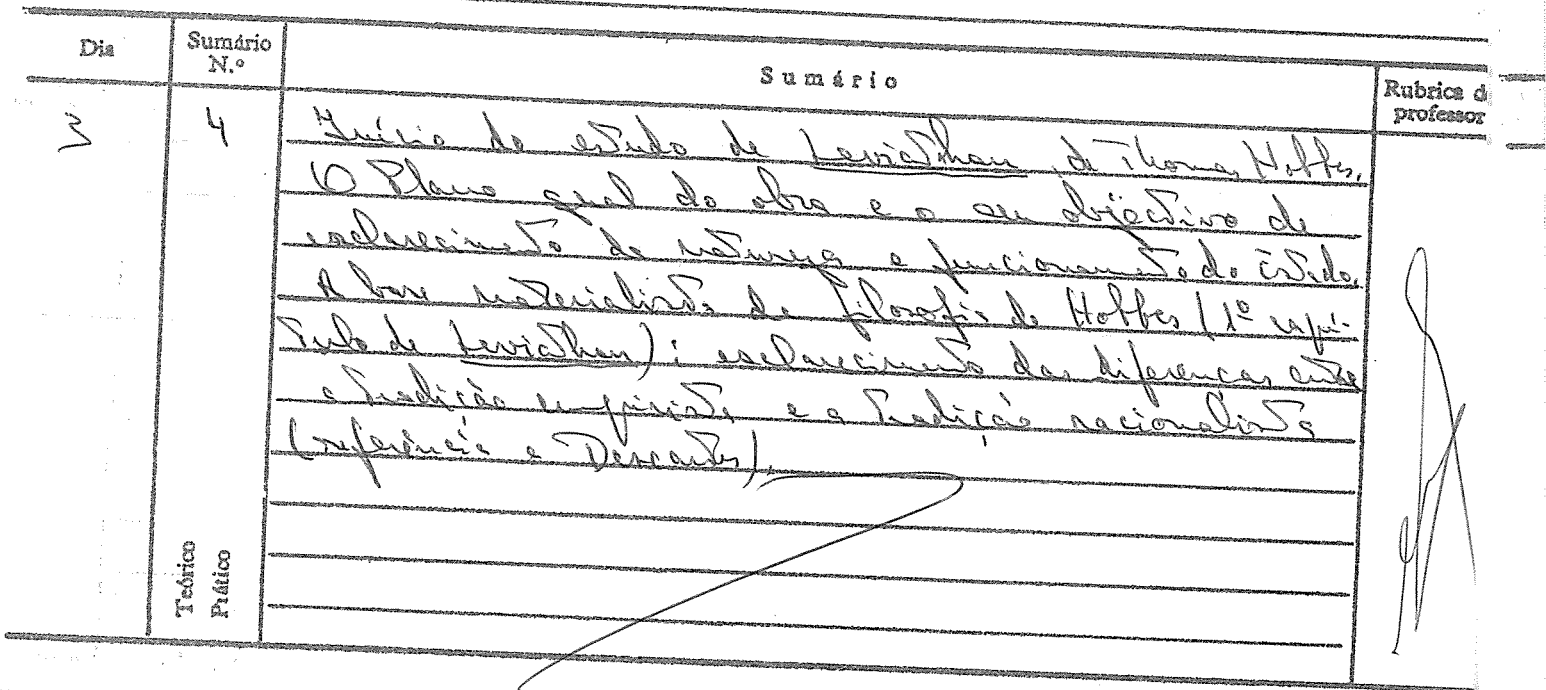 Dia
Sumário
N.º
Sumário
Rubrica d
professor
3
4
Início do estudo de Leviathan, de Thomas Hobbes.
O Plano geral da obra e o seu objectivo de
esclarecimento da natureza e funcionamento do Estado.
A base materialista da filosofia de Hobbes (1º capí-
tulo de Leviathan): esclarecimento das diferenças entre
a tradição empirista e a tradição racionalista
(referência a Descartes).
Teórico
Prático